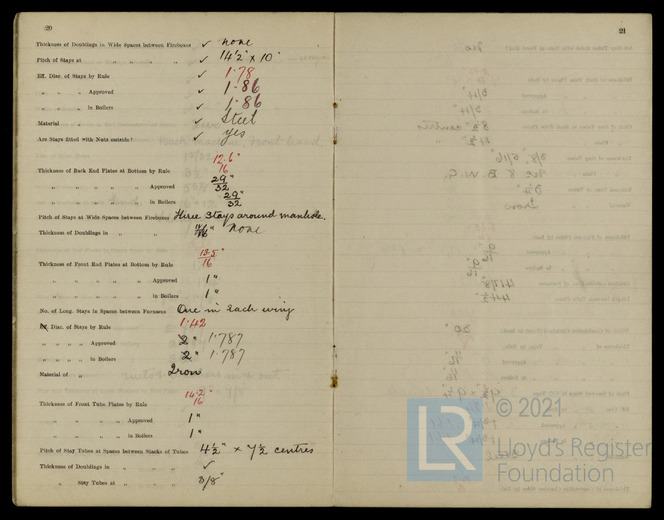 20
Thickness of Doublings in Wide Spaces between Fireboxes ✓ none
Pitch of Stays at " " " " ✓ 14½" × 10"
Eff. Diar. of Stays by Rule ✓ 1.78
" " " Approved ✓ 1.86
" " " in Boilers ✓ 1.86
Material " ✓ Steel
Are Stays fitted with Nuts outside? ✓ yes
Thickness of Back End Plates at Bottom by Rule 12.6"/16
" " " " " Approved 29"/32
" " " " " in Boilers 29"/32
Pitch of Stays at Wide Spaces between Fireboxes Three Stays around manhole.
Thickness of Doublings in " " none
Thickness of Front End Plates at Bottom by Rule 13.5"/16
" " " " " Approved 1"
" " " " " in Boilers 1"
No. of Long. Stays in Spaces between Furnaces One in each wing
Eff. Diar. of Stays by Rule 1.42
" " " Approved 2" 1.787
" " " in Boilers 2" 1.787
Material of " Iron
Thickness of Front Tube Plates by Rule 14.2"/16
" " " " Approved 1"
" " " " in Boilers 1"
Pitch of Stay Tubes at Spaces between Stacks of Tubes 4½" × 7½ centres
Thickness of Doublings in " " ✓
" Stay Tubes at " " 3/8"
21
© 2021
LR
Lloyd's Register
Foundation